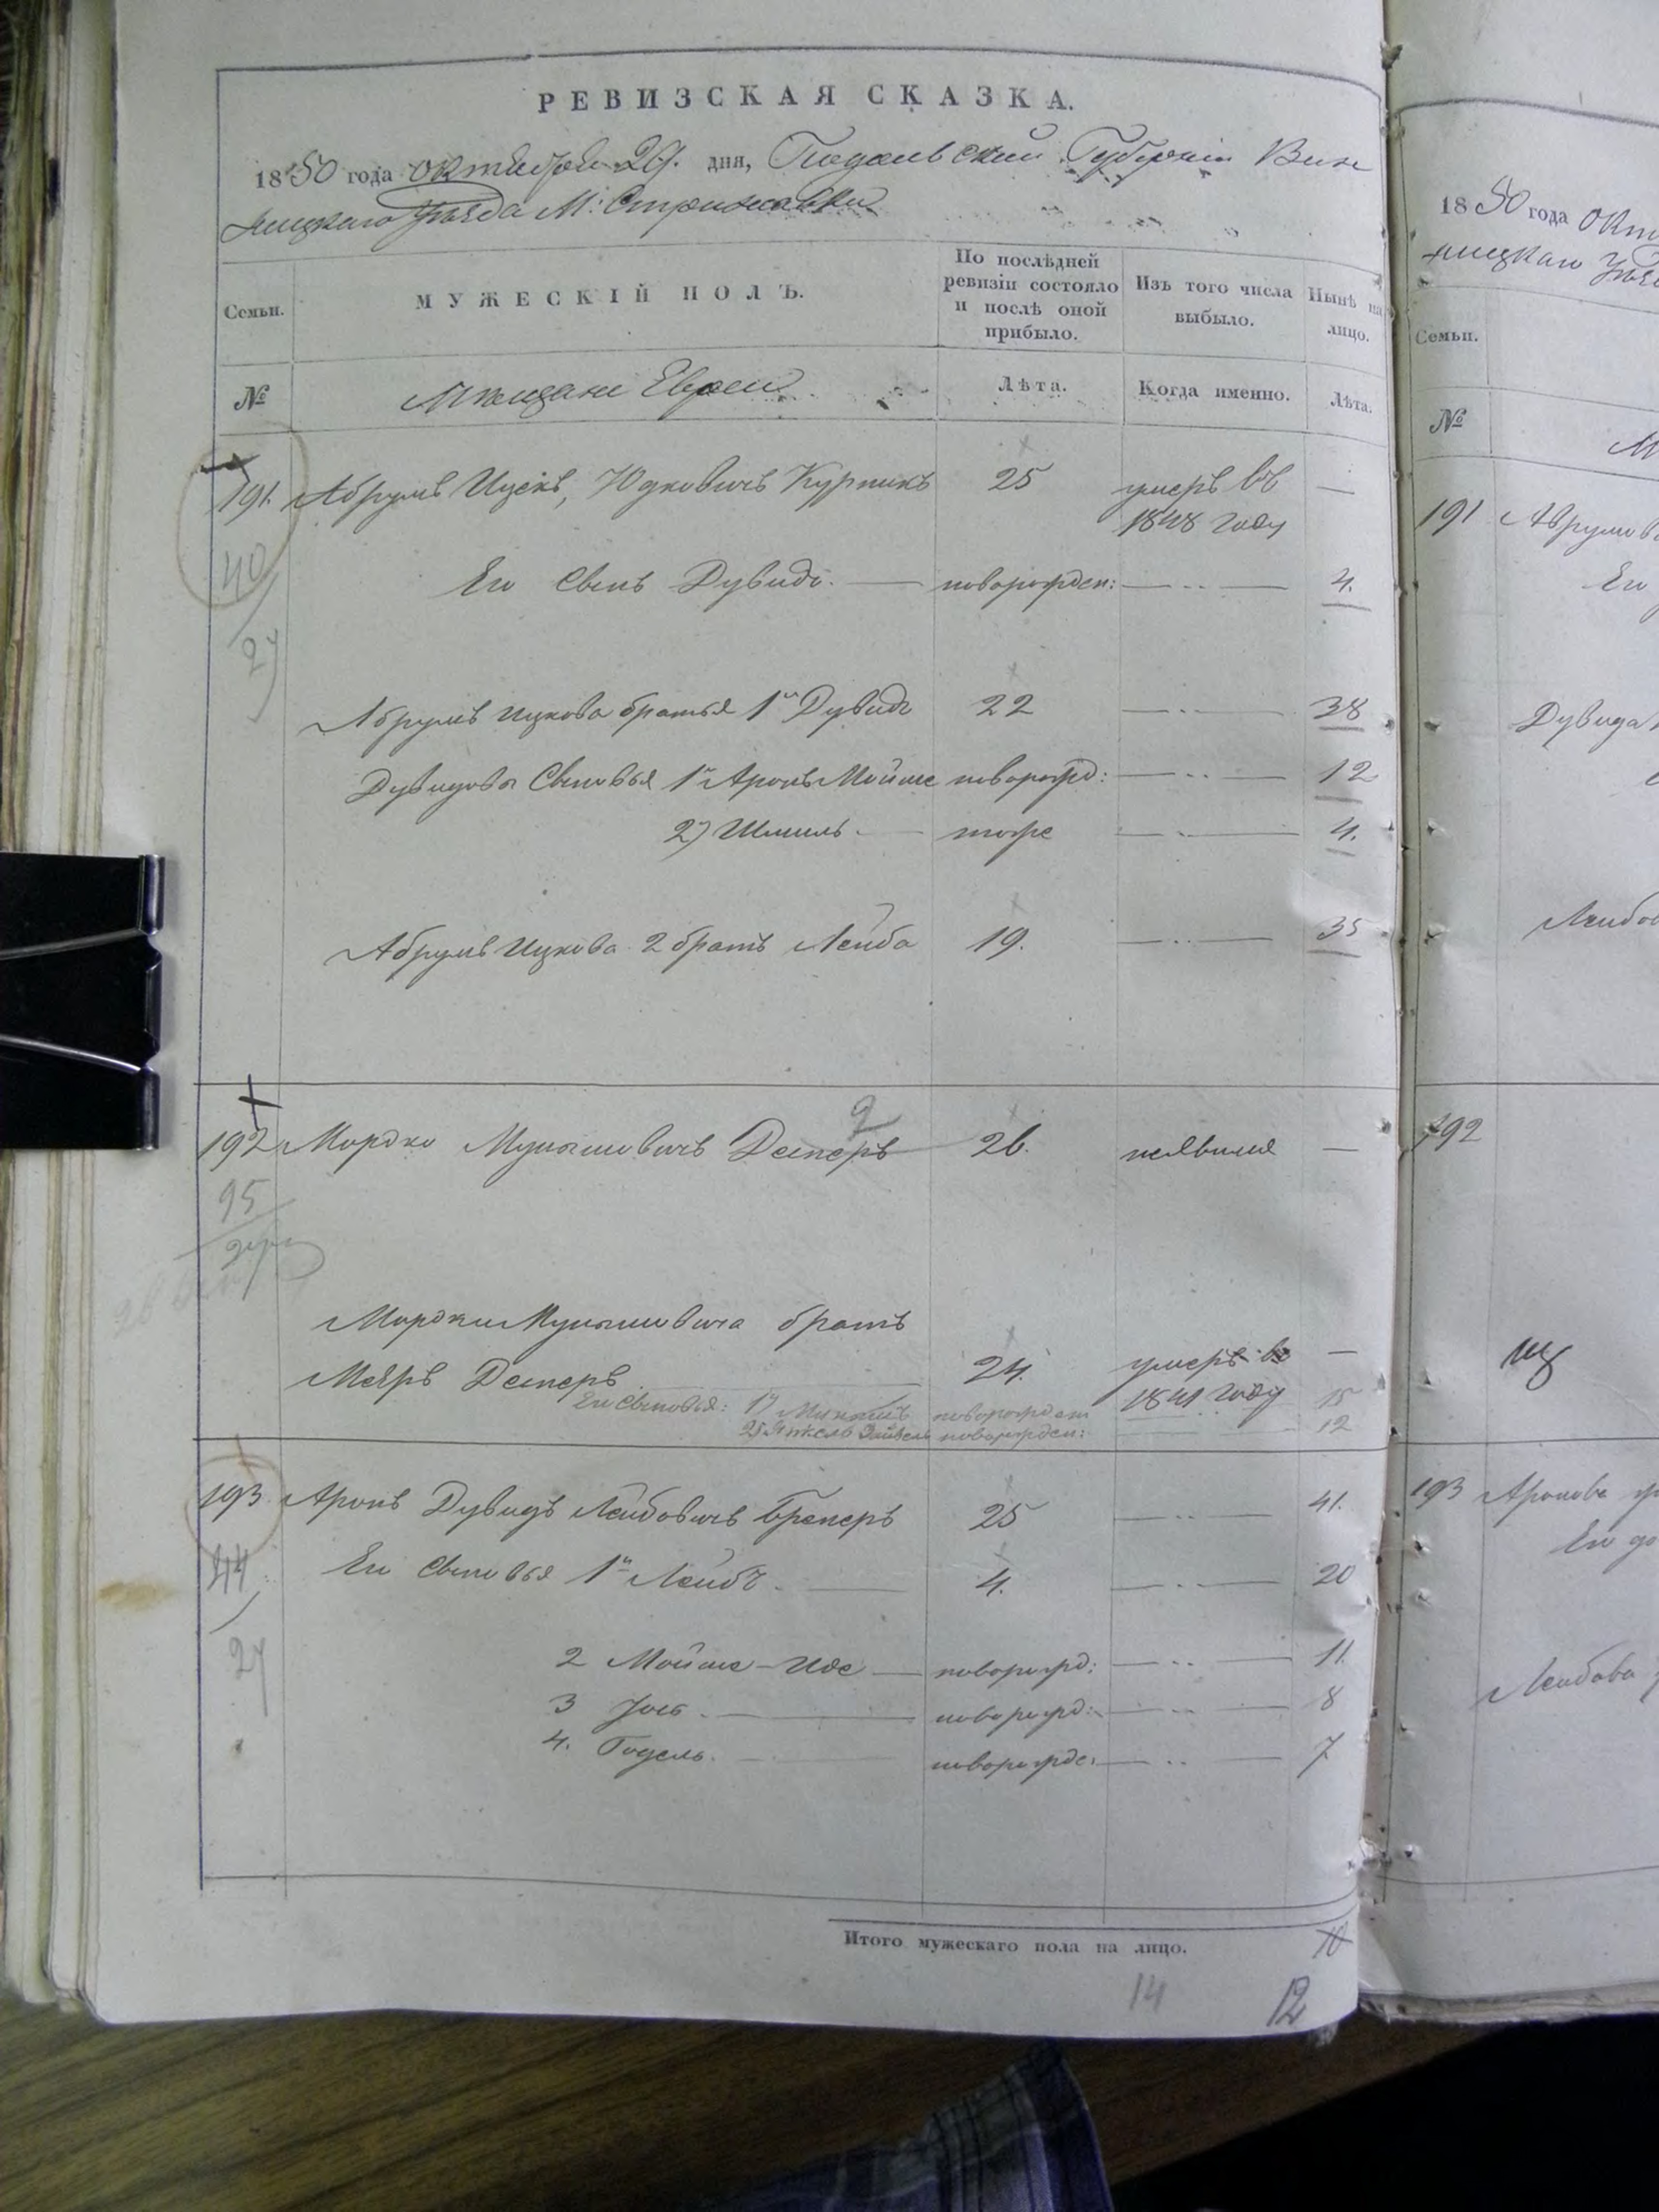 РЕВИЗСКАЯ СКАЗКА.
1850 года октября 29. дня, Подольской Губерніи Вин
ницкаго Уѣзда М: Стрижавки
Семьи.
МУЖЕСКІЙ ПОЛЪ.
По послѣдней ревизіи состояло и послѣ оной прибыло.
Изъ того числа выбыло.
Нынѣ на лицо.
№
Мѣщане Евреи
Лѣта.
Когда именно.
Лѣта.
191. Абрумъ Ицекъ, Юдковичъ Курникъ 25 умеръ въ —
1848 году
40
Его Сынъ Дувидъ. — новорожден: — 4.
27
Абрумъ Ицкова братья 1й Дувидъ 22 — 38
Дувидовы Сыновья 1й Аронъ Мойше новорожд: — 12
2) Шмиль — тоже — 4.
Абрумъ Ицкова 2 братъ Лейба 19. — 35
2
192 Мордко Мунышовичъ Декеръ 26. неявился —
95
Мордки Мунышовича братъ
Меяръ Декеръ 24. умеръ въ —
1841 году
Его Сыновья: 1) новорожден 15
2) новорожден: 12
193 Аронъ Дувидъ Лейбовичъ 25 — 41.
Его Сыновья 1й Лейбъ — 4. — 20
44
2 Мойше-Иде — новорожд: — 11
27
3 Јось — новорожд: — 8
4. Годель. — новорожде: — 7
Итого мужескаго пола на лицо. 10
14 12
1850 года Окт
ницкаго Уѣз
Семьи.
№
М
191 Абрумов
Его
Дувида
Лейбов
192
193 Аронова
Его до
Лейбова